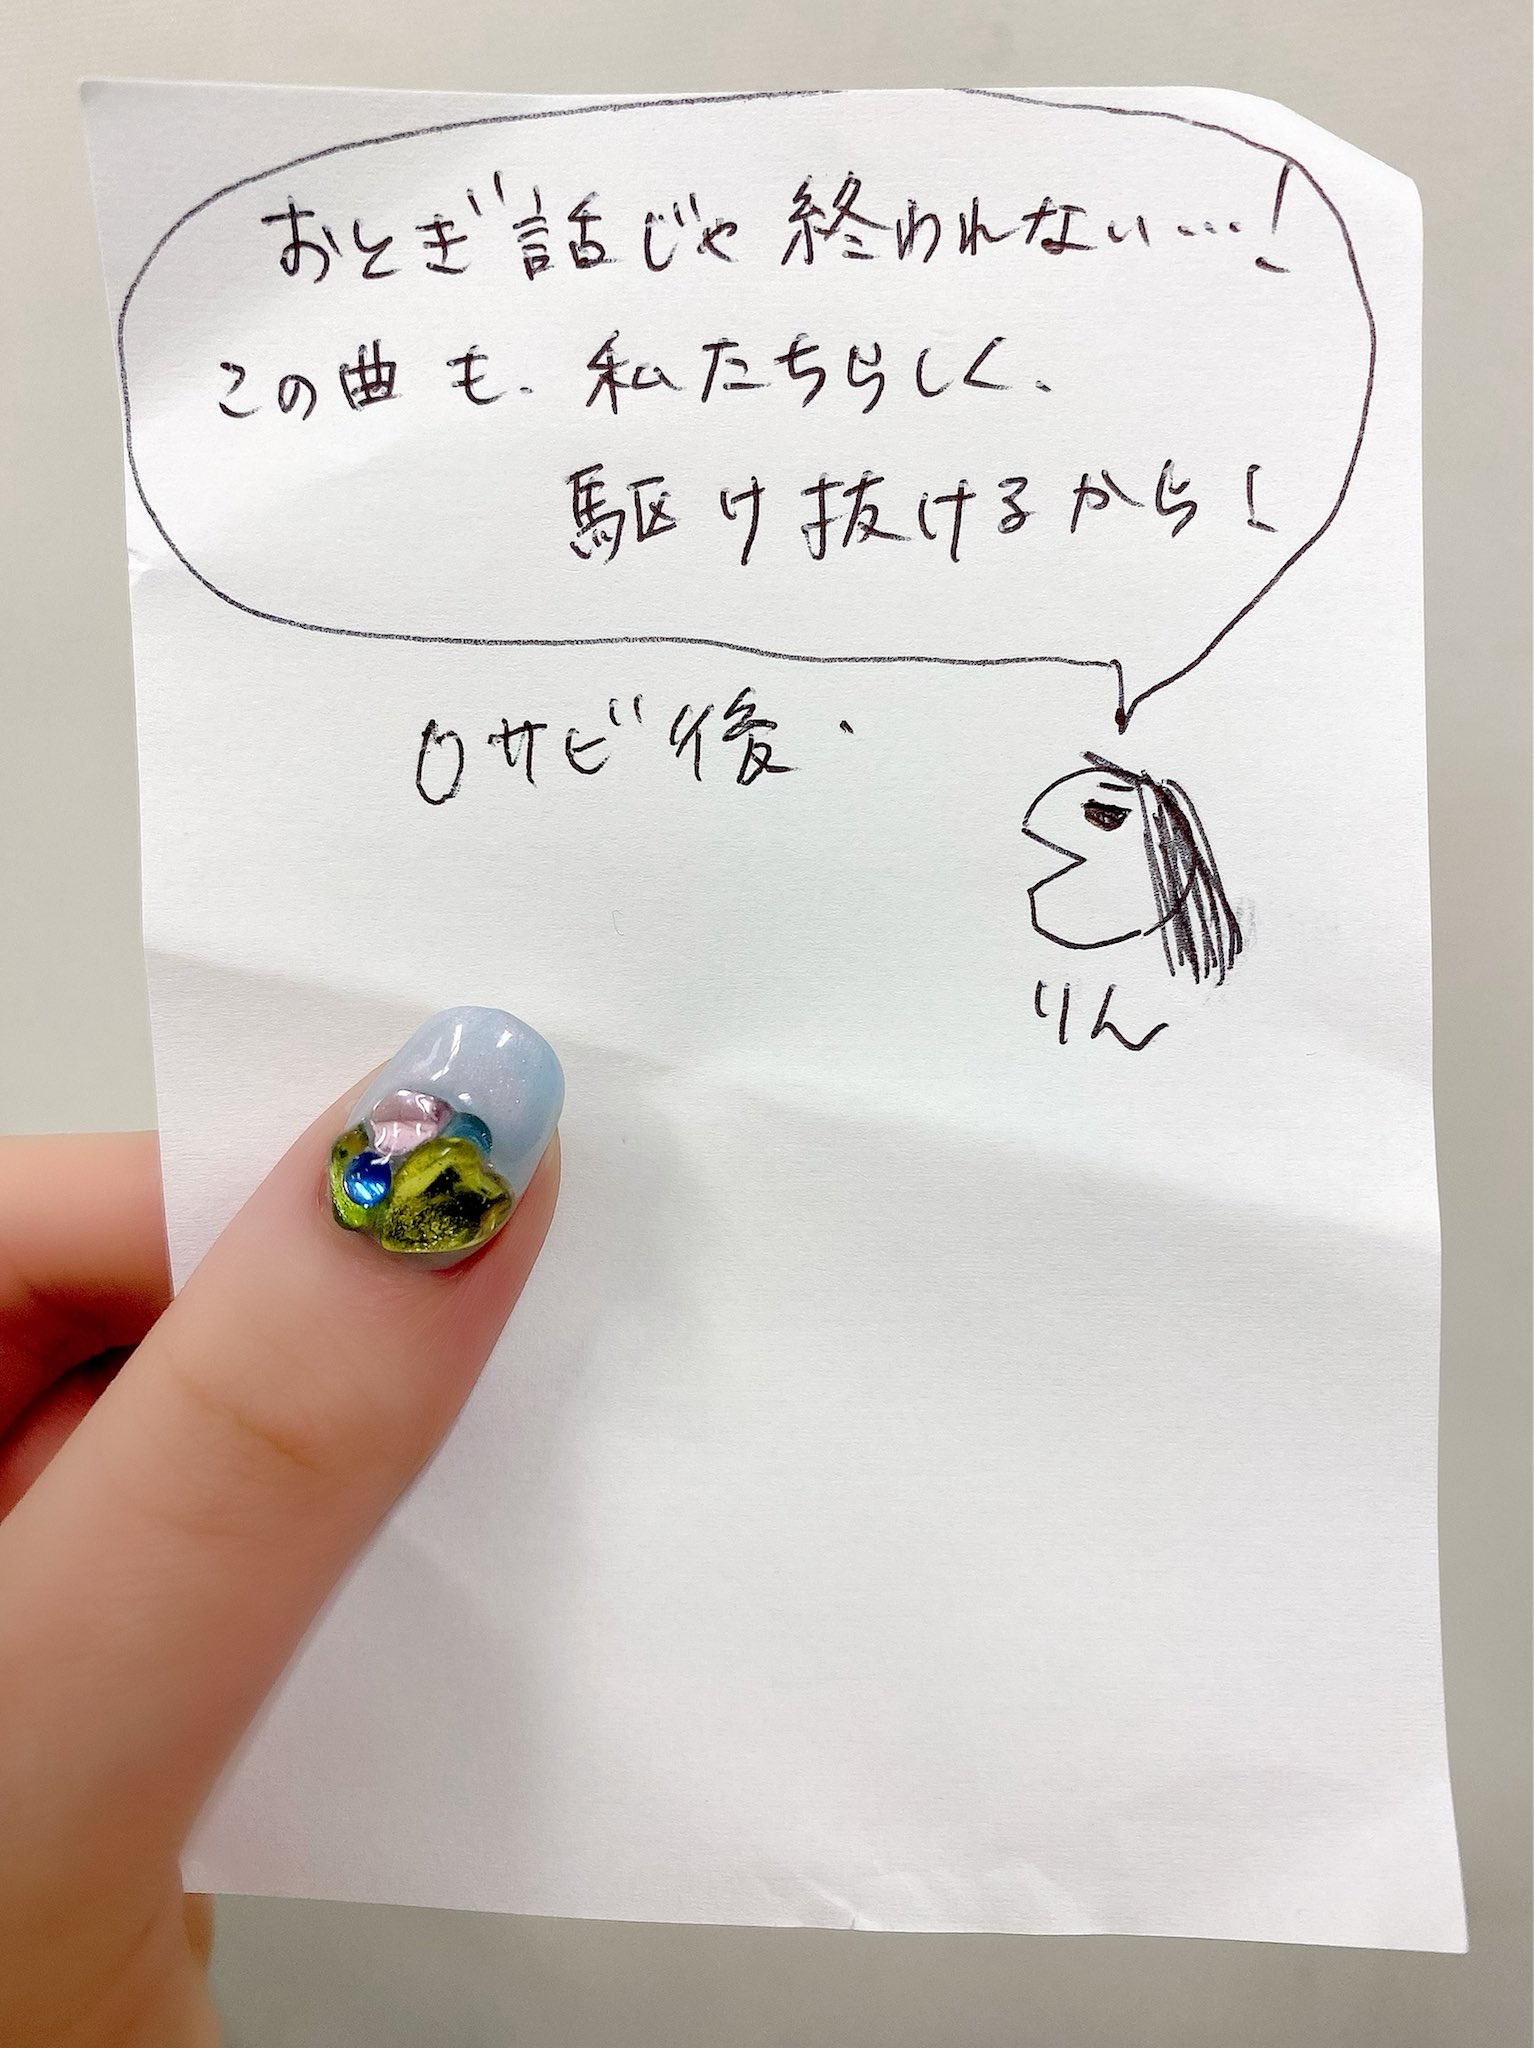 おとぎ話じゃ終われない…!
この曲も、私たちらしく、
駆け抜けるから!
0サビ後、
りん